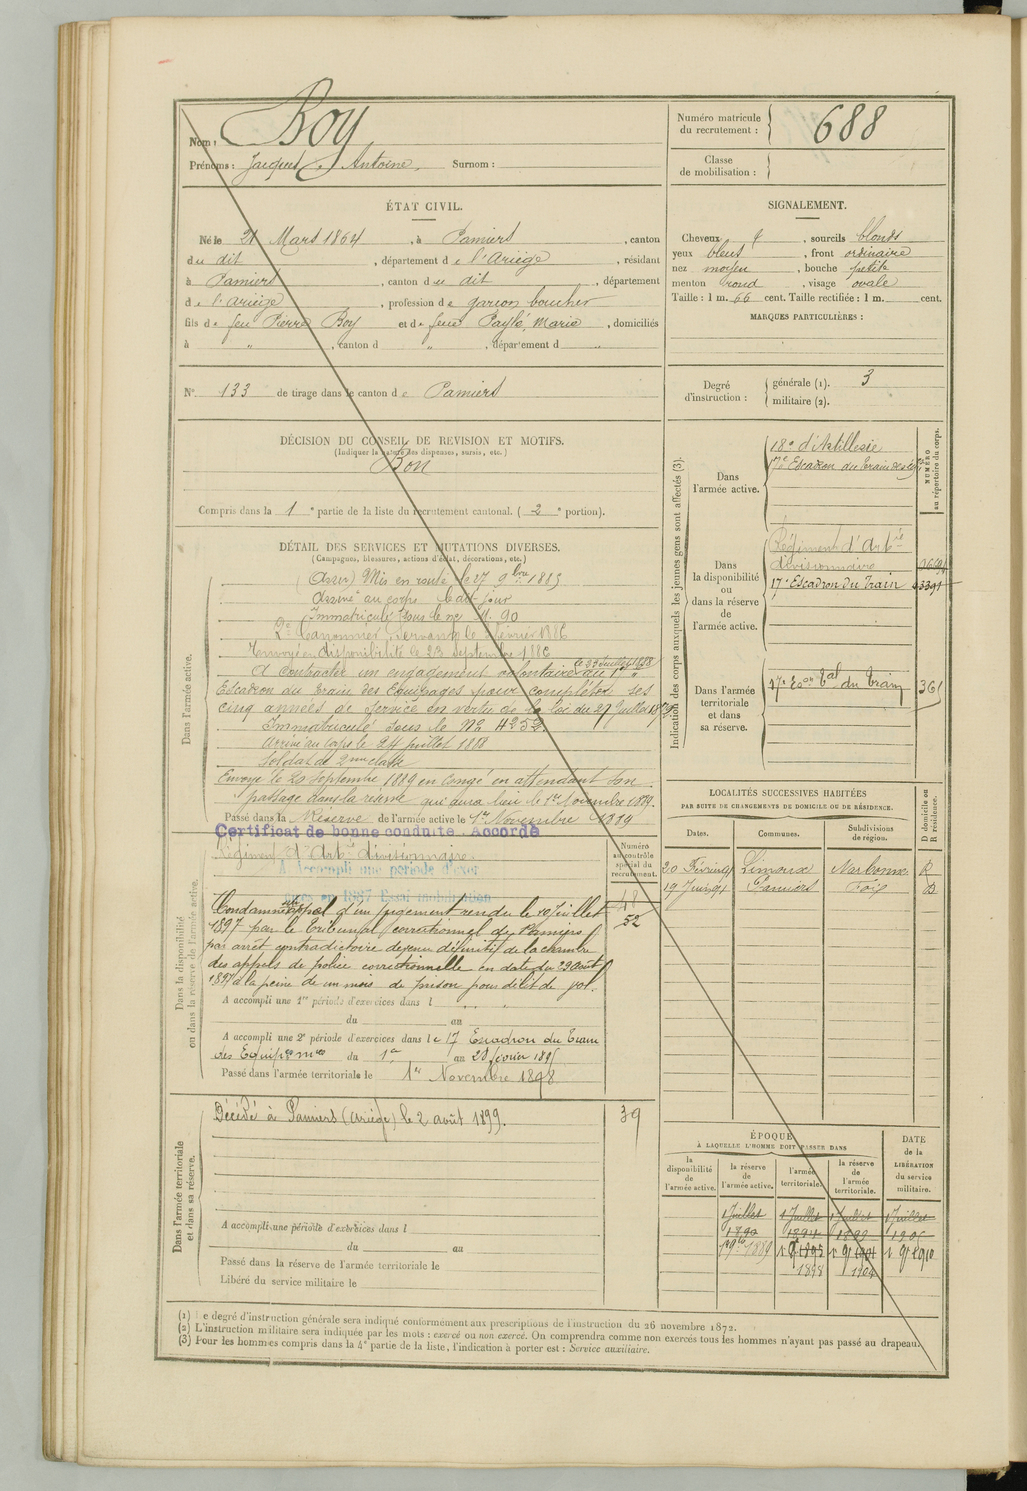 Nom : Boy
Prénoms : Jacques Antoine. Surnom :
Numéro matricule du recrutement : 688
Classe de mobilisation :
ÉTAT CIVIL.
Né le 21 Mars 1864, à Pamiers, canton
du dit, département de l'Ariège, résidant
à Pamiers, canton du dit, département
de l'Ariège, profession de garçon boucher
fils de feu Pierre Boy et de feue Paylé, Marie, domiciliés
à „, canton d „, département d „
N° 133 de tirage dans le canton de Pamiers
DÉCISION DU CONSEIL DE REVISION ET MOTIFS.
(Indiquer la nature des dispenses, sursis, etc.)
Bon
Compris dans la 1e partie de la liste du recrutement cantonal. (2e portion).
DÉTAIL DES SERVICES ET MUTATIONS DIVERSES.
(Campagnes, blessures, actions d'éclat, décorations, etc.)
Dans l'armée active.
Mis en route le 27 9bre 1885
Arrivé au corps le dit jour
Immatriculé sous le no
2e Canonnier Servant le février 1886
Envoyé en disponibilité le 23 septembre 1886
A contracter un engagement volontaire le 23 Juillet 1888 au 17e
Escadron du train des Equipages pour compléter ses
cinq années de service en vertu de la loi du 27 Juillet 1872.
Immatriculé sous le No 4252.
Arrivé au corps le 24 juillet 1888
Soldat de 2me classe
Envoyé le 20 Septembre 1889 en congé en attendant son
passage dans la réserve qui aura lieu le 1er Novembre 1889.
Passé dans la Réserve de l'armée active le 1er Novembre 1889
Certificat de bonne conduite. Accordé
Dans la disponibilité ou dans la réserve de l'armée active.
Régiment d'Artie divisionnaire
A accompli une période d'exer
cices en 1887 Essai mobilisation
Condamné sur appel d'un jugement rendu le 10 Juillet
1897 par le Tribunal correctionnel de Pamiers
par arrêt contradictoire devenu définitif de la chambre
des appels de police correctionnelle en date du 29 août
1897 à la peine de un mois de prison pour délit de vol.
A accompli une 1re période d'exercices dans l
du au
A accompli une 2e période d'exercices dans le 17 Escadron du Train
des Equipages mres du 1er au 28 février 1895
Passé dans l'armée territoriale le 1er Novembre 1898
Numéro au contrôle spécial du recrutement.
18
52
Dans l'armée territoriale et dans sa réserve.
Décédé à Pamiers (Ariège) le 2 août 1899.
39
A accompli une période d'exercices dans l
du au
Passé dans la réserve de l'armée territoriale le
Libéré du service militaire le
SIGNALEMENT.
Cheveux, sourcils blonds
yeux bleus, front ordinaire
nez moyen, bouche petite
menton rond, visage ovale
Taille : 1 m. 66 cent. Taille rectifiée : 1 m. cent.
MARQUES PARTICULIÈRES :
Degré d'instruction : générale (1). 3
militaire (2).
Indication des corps auxquels les jeunes gens sont affectés (3).
NUMÉRO au répertoire du corps.
Dans l'armée active.
18e d'Artillerie
17e Escadron du train des Eq
Dans la disponibilité ou dans la réserve de l'armée active.
Régiment d'Artie
divisionnaire
17e Escadron du Train
Dans l'armée territoriale et dans sa réserve.
17e Eson Tal du Train 361
LOCALITÉS SUCCESSIVES HABITÉES
PAR SUITE DE CHANGEMENTS DE DOMICILE OU DE RÉSIDENCE.
Dates. Communes. Subdivisions de région. D domicile ou R résidence.
20 Février 91 Limoux Narbonne R
19 Juin 91 Pamiers Foix D
ÉPOQUE
À LAQUELLE L'HOMME DOIT PASSER DANS
la disponibilité de l'armée active. la réserve de l'armée active. l'armée territoriale. la réserve de l'armée territoriale. DATE de la LIBÉRATION du service militaire.
1 Juillet 1 Juillet 1 Juillet 1 Juillet
1890
1er 9bre 1889
1898 1904
(1) Le degré d'instruction générale sera indiqué conformément aux prescriptions de l'instruction du 26 novembre 1872.
(2) L'instruction militaire sera indiquée par les mots : exercé ou non exercé. On comprendra comme non exercés tous les hommes n'ayant pas passé au drapeau.
(3) Pour les hommes compris dans la 4e partie de la liste, l'indication à porter est : Service auxiliaire.